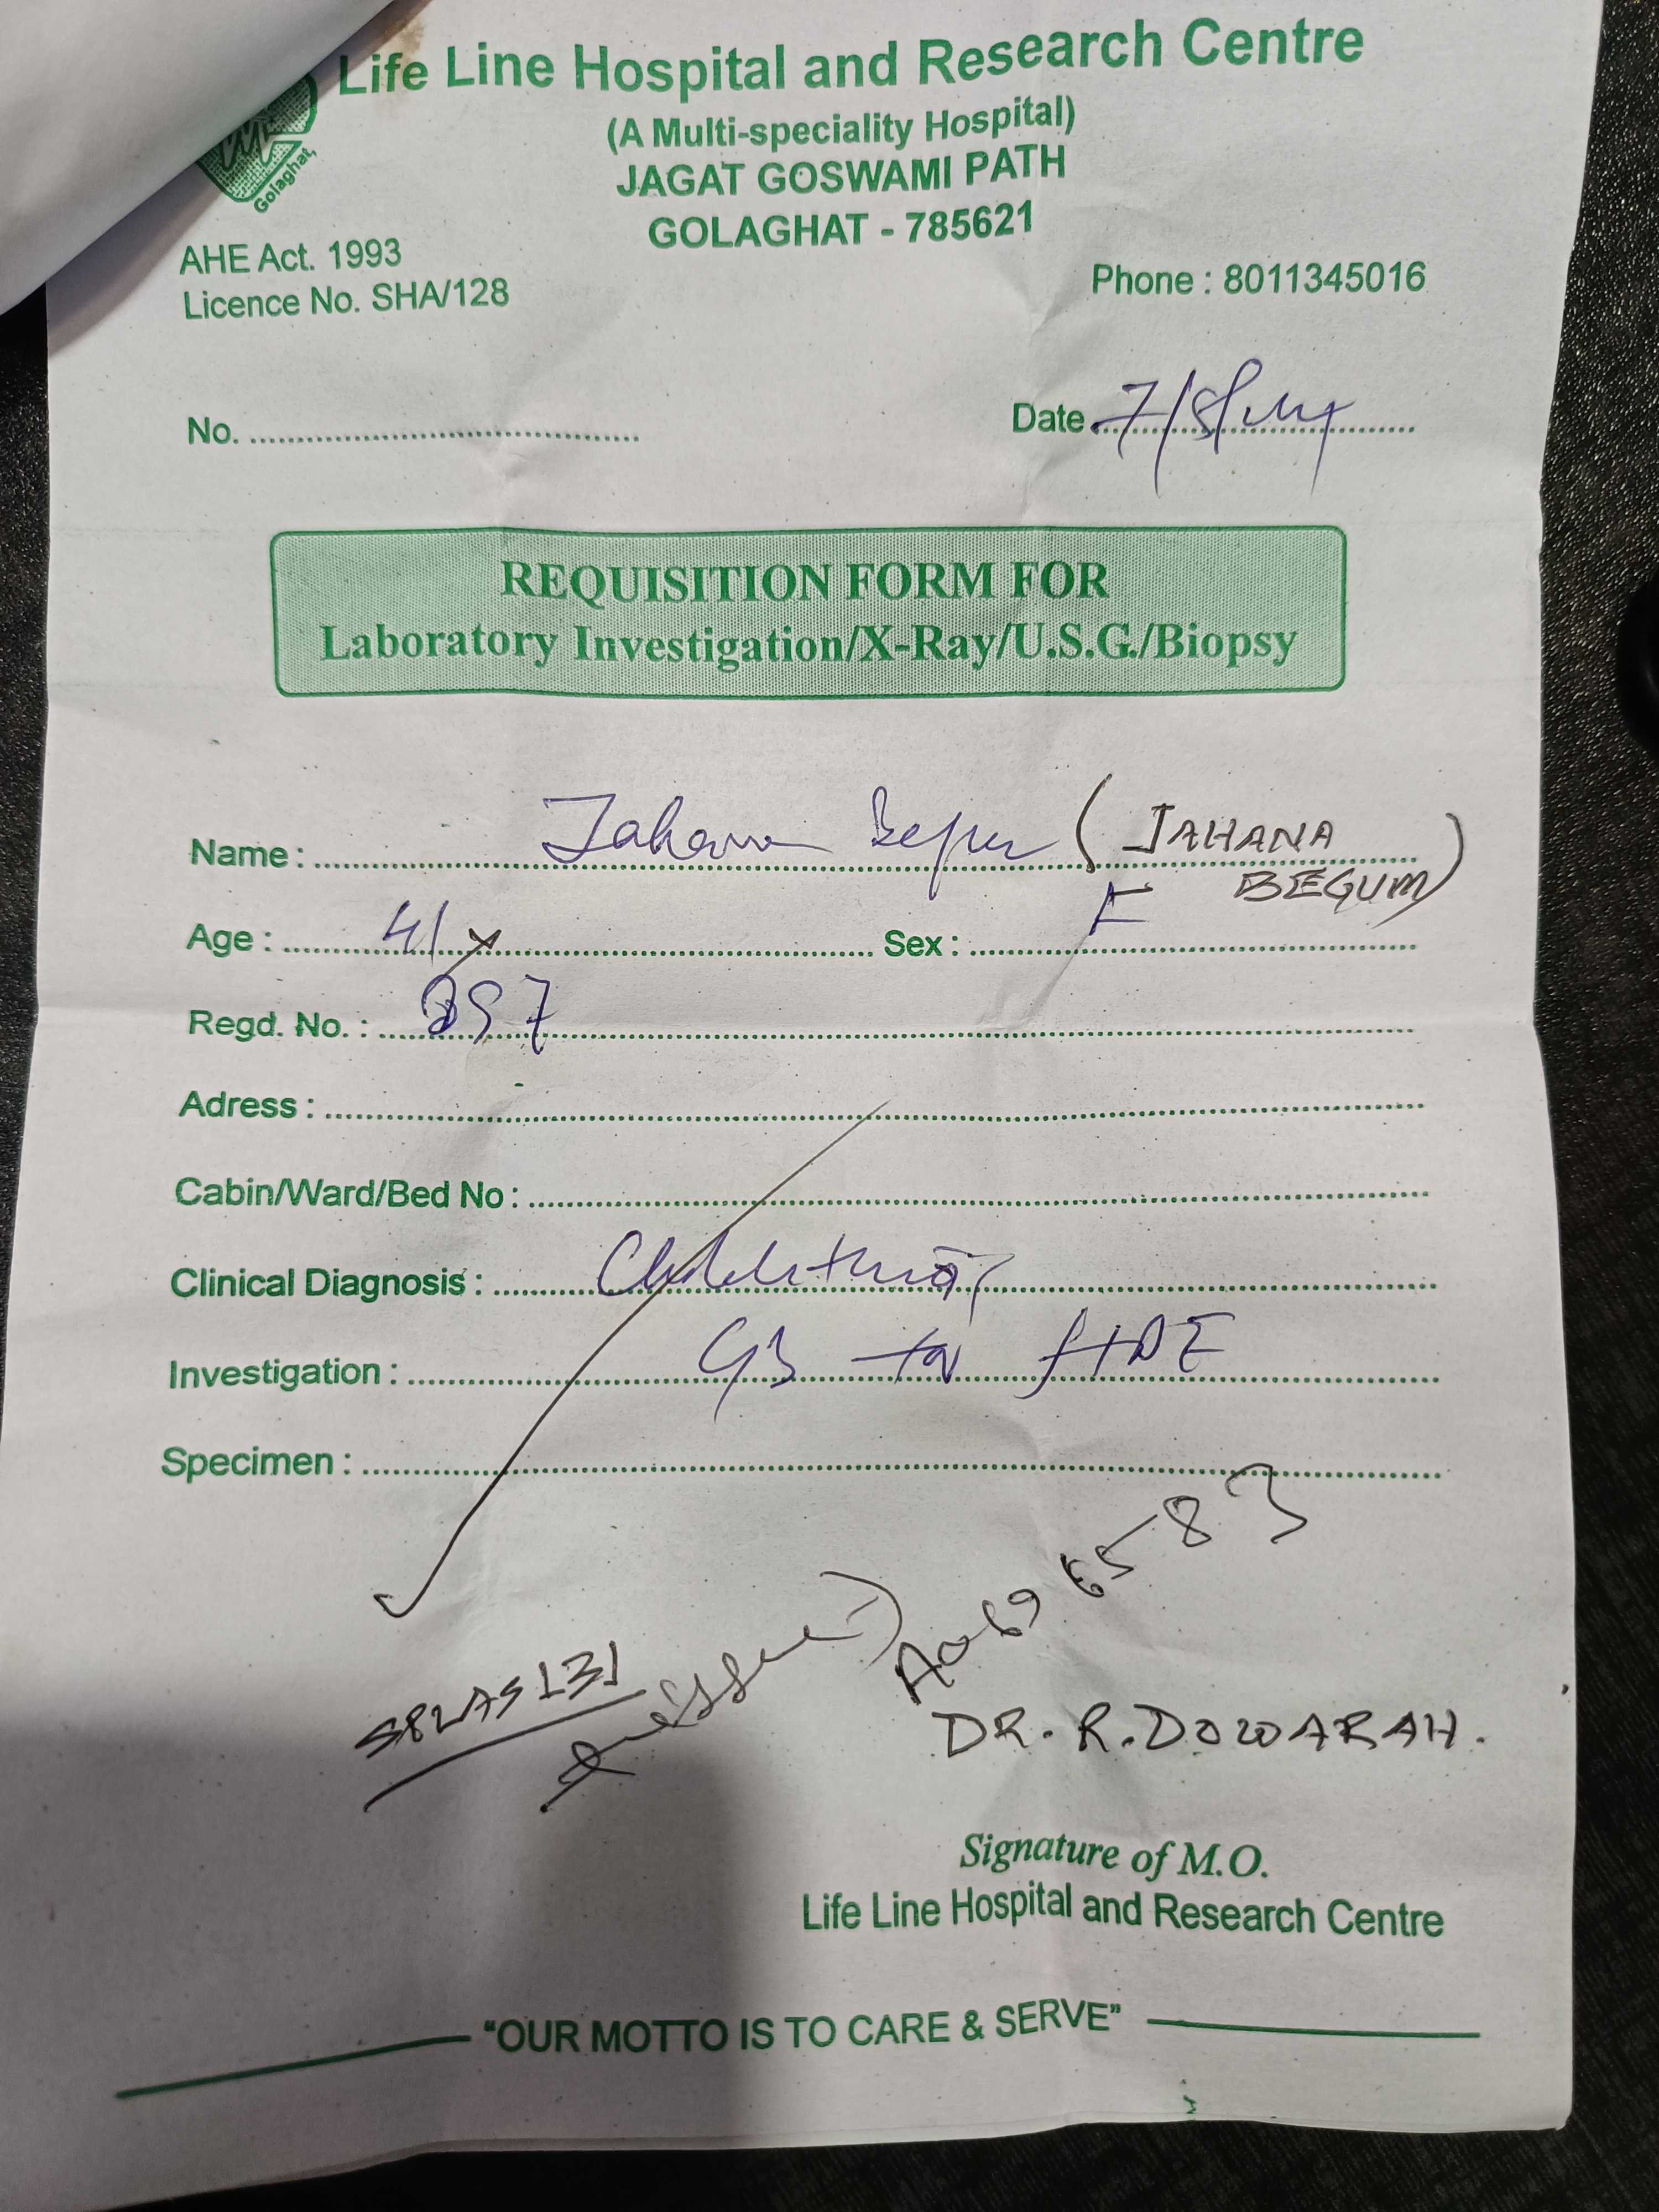 Life Line Hospital and Research Centre
(A Multi-speciality Hospital)
JAGAT GOSWAMI PATH
GOLAGHAT - 785621
Golaghat,
AHE Act. 1993
Licence No. SHA/128
Phone : 8011345016
No.
Date 7/8/
REQUISITION FORM FOR
Laboratory Investigation/X-Ray/U.S.G./Biopsy
Name : Jahana Begum (JAHANA
BEGUM)
Age : 41 Sex : F
Regd. No. : 297
Adress :
Cabin/Ward/Bed No :
Clinical Diagnosis :
Investigation : GB for HPE
Specimen :
A0696583
DR. R. DOWARAH.
Signature of M.O.
Life Line Hospital and Research Centre
"OUR MOTTO IS TO CARE & SERVE"